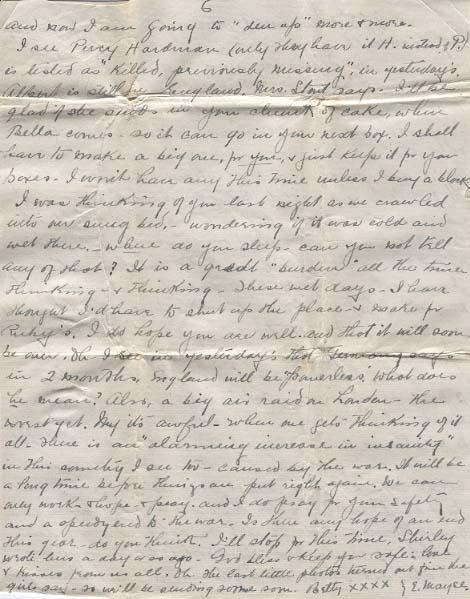 6
and now I am going to "den up" more & more.
I see Percy Hardman (only they have it H. instead of P.)
is listed as "Killed, previously missing", in yesterday's.
Albert is still in England. Mrs. Stout says. I'll be
glad if she sends in your chunk of cake, when
Bella comes - so it can go in your next box. I shall
have to make a big one, for you, & just keep it for your
boxes. I won't have any this time unless I buy a block.
I was thinking of you last night as we crawled
into our snug bed, - wondering if it was cold and
wet there. - where do you sleep - can you not tell
any of that? It is a great "burden" all the time
thinking - & thinking. These wet days - I have
thought I'd have to shut up the place & make for
Ruby's. I do hope you are well - and that it will soon
be over. Oh I see in yesterday's that Germany says
in 2 months, England will be "powerless" what does
he mean? Also, a big air raid on London - the
worst yet. My it's awful - when one gets thinking of it
all. There is an "alarming increase in insanity"
in this country I see too - caused by the war. It will be
a long time before things are put right again. We can
only work - & hope - & pray. and I do pray for your safety
and a speedy end to the war. Is there any hope of an end
this year - do you think. I'll stop for this time, Shirley
wrote here a day or so ago. God bless & keep you safe. love
& kisses from us all. Oh the last little photos turned out fine the
girls say - so will be sending some soon. Betty xxxx } E. Mayse